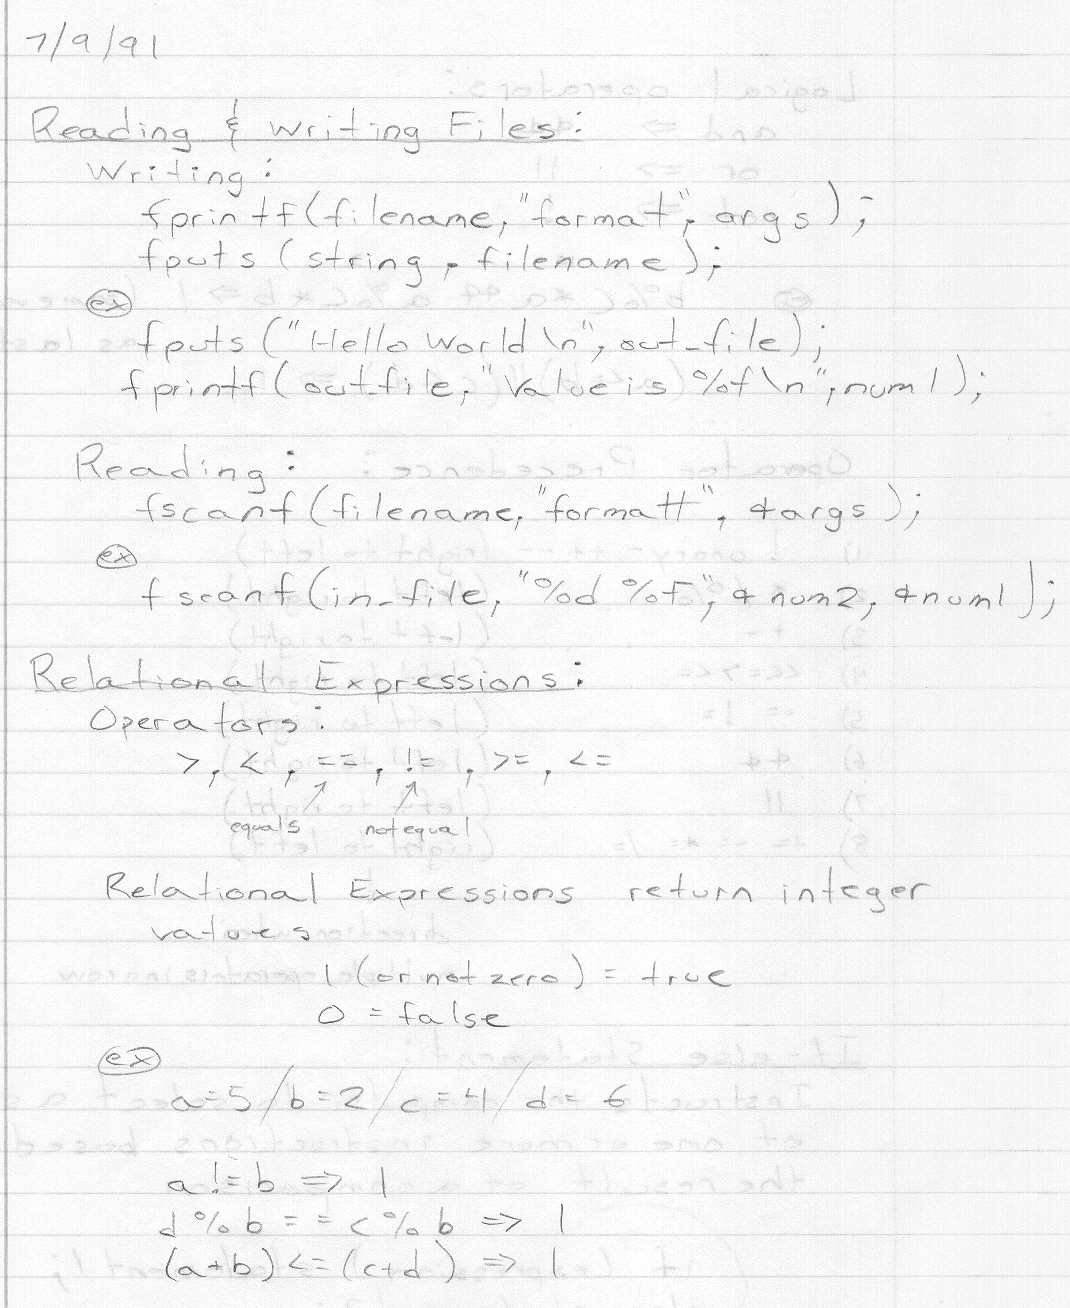 7/9/91
Reading & Writing Files:
Writing:
fprintf(filename, "format", args);
fputs (string, filename);
ex
fputs ("Hello World \n", out_file);
fprintf(out_file, "Value is %f \n", num1);
Reading:
fscanf(filename, "format", &args);
ex
fscanf(in_file, "%d %f", &num2, &num1);
Relational Expressions:
Operators:
>, <, ==, !=, >=, <=
equals not equal
Relational Expressions return integer
values
1 (or not zero) = true
0 = false
ex
a=5/b=2/c=4/d=6
a!=b => 1
d%b == c%b => 1
(a+b) <= (c+d) => 1